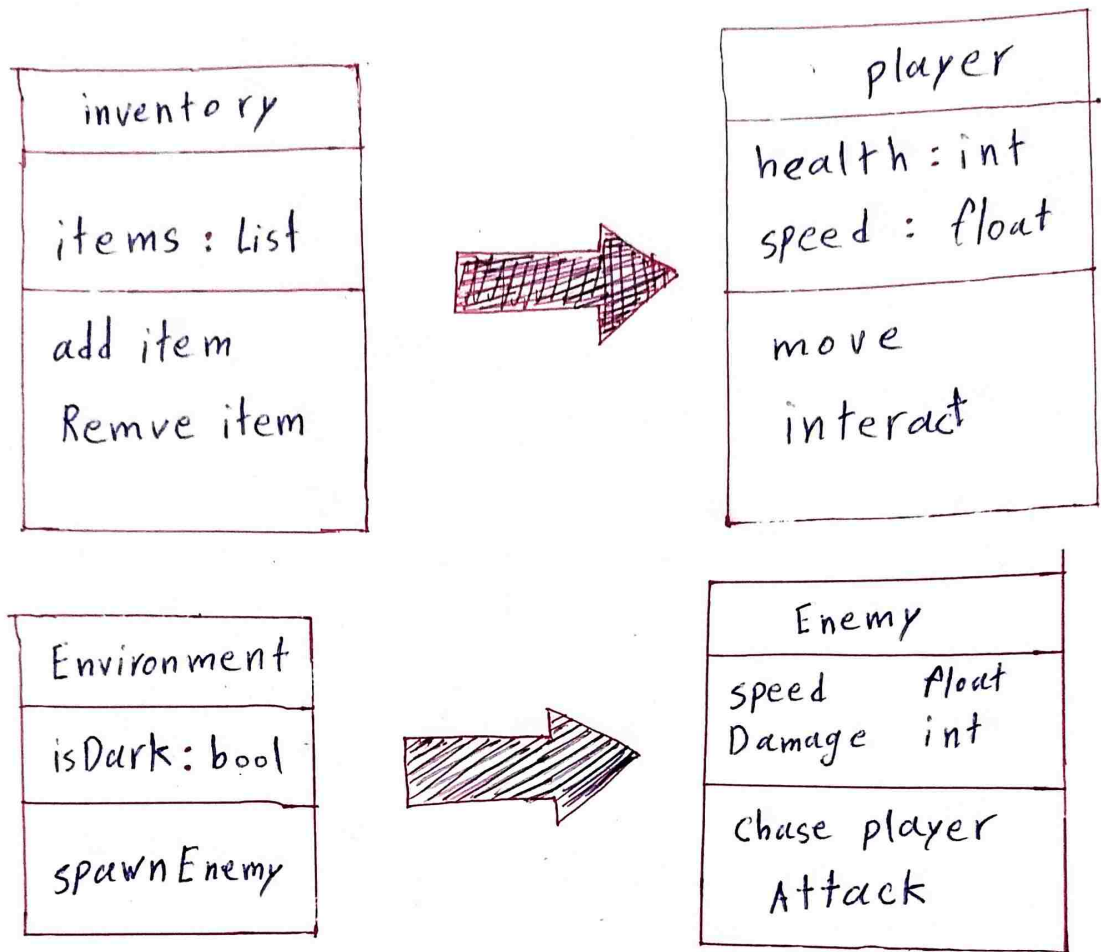 inventory
items : List
add item
Remve item
player
health : int
speed : float
move
interact
Environment
isDark : bool
spawnEnemy
Enemy
speed float
Damage int
Chase player
Attack